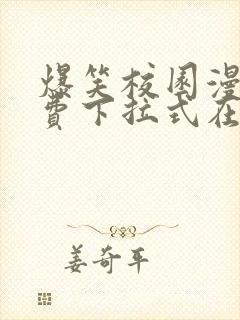 爆笑校园漫
费下拉式在
姜奇平